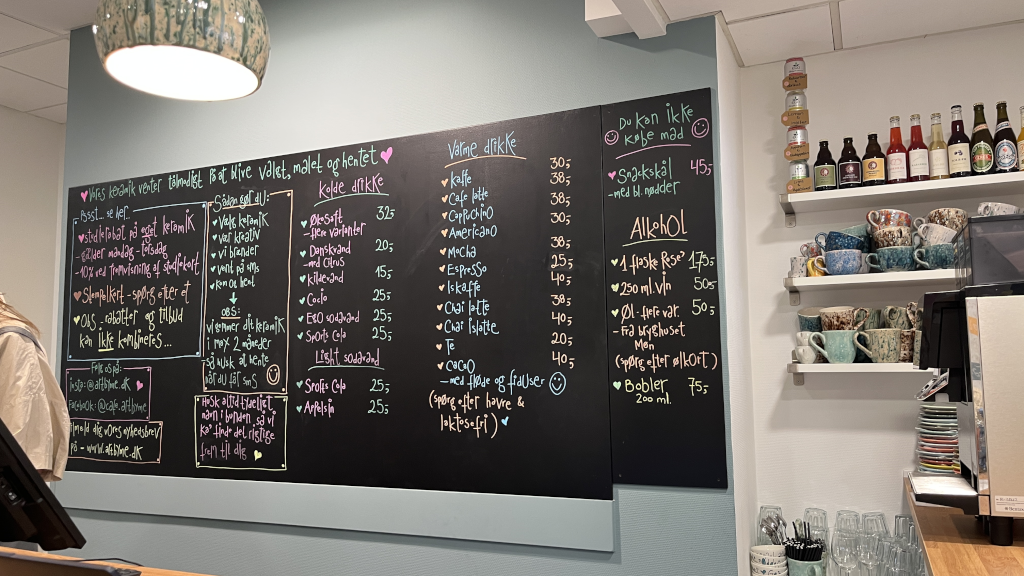 ♥ Vores keramik venter tålmodigt på at blive valgt, malet og hentet ♥
Pssst... se her...
♥ studierabat på eget keramik
- gælder mandag - torsdag
- 10% ved fremvisning af studiekort
♥ Stempelkort - spørg efter et
♥ OBS - rabatter og tilbud
kan ikke kombineres...
Følg os på:
Insta: @aftbyme.dk ♥
Facebook: @cafe.aftbyme
vores nyhedsbrev
på - www.aftbyme.dk
Sådan gør du:
♥ Vælg keramik
♥ Vær kreativ
♥ Vi brænder
♥ Vent på sms
♥ Kom og hent
OBS:
Vi gemmer dit keramik
i max 2 måneder
så husk at hente
når du får sms
Husk altid tydeligt
navn i bunden, så vi
kan finde det rigtige
frem til dig ♥
Kolde drikke
♥ Økosaft 32,-
- flere varianter
♥ Danskvand 20,-
med citrus
♥ Kildevand 15,-
♥ Cocio 25,-
♥ EBO sodavand 25,-
♥ Sports Cola 25,-
Light sodavand
♥ Sports Cola 25,-
♥ Appelsin 25,-
Varme drikke
♥ Kaffe 30,-
♥ Cafe latte 38,-
♥ Cappuchino 38,-
♥ Americano 30,-
♥ Mocha 38,-
♥ Espresso 25,-
♥ Iskaffe 40,-
♥ Chai latte 38,-
♥ Chai Islatte 40,-
♥ Te 20,-
♥ Cacao 40,-
- med fløde og fidusser
(spørg efter havre &
laktosefri) ♥
Du kan ikke
købe mad
♥ Snackskål 45,-
- med bl. nødder
Alkohol
♥ 1 flaske Rosé 175,-
♥ 250 ml. vin 50,-
♥ Øl - flere var. 50,-
- Fra Bryghuset
Møn
(spørg efter ølkort)
♥ Bobler 75,-
200 ml.